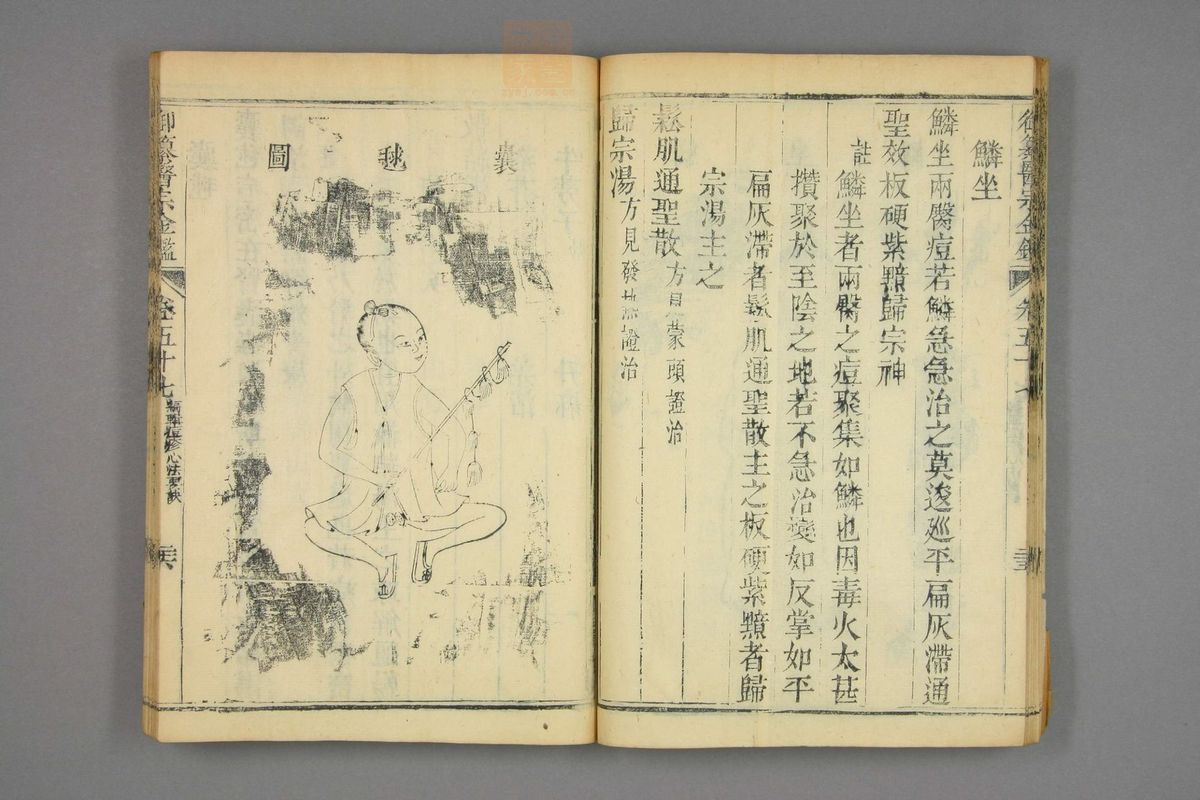 鱗坐
鱗坐兩臀痘若鱗急急治之莫逡巡平扁灰滯通
聖效板硬紫黯歸宗神
註
鱗坐者兩臀之痘聚集如鱗也因毒火太甚
攢聚於至陰之地若不急治變如反掌如平
扁灰滯者鬆肌通聖散主之板硬紫黯者歸
宗湯主之
鬆肌通聖散方見蒙頭證治
歸宗湯方見發熱證治
囊毬圖
御纂醫宗金鑑
卷五十七
新輯痘疹心法要訣